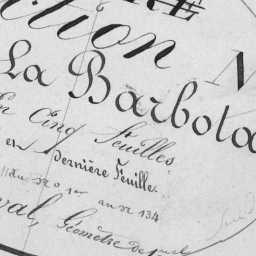 tion N
La Barbota
En Cinq Feuilles.
en Dernière Feuille.
du No 1er au No 134
val, Géomètre de